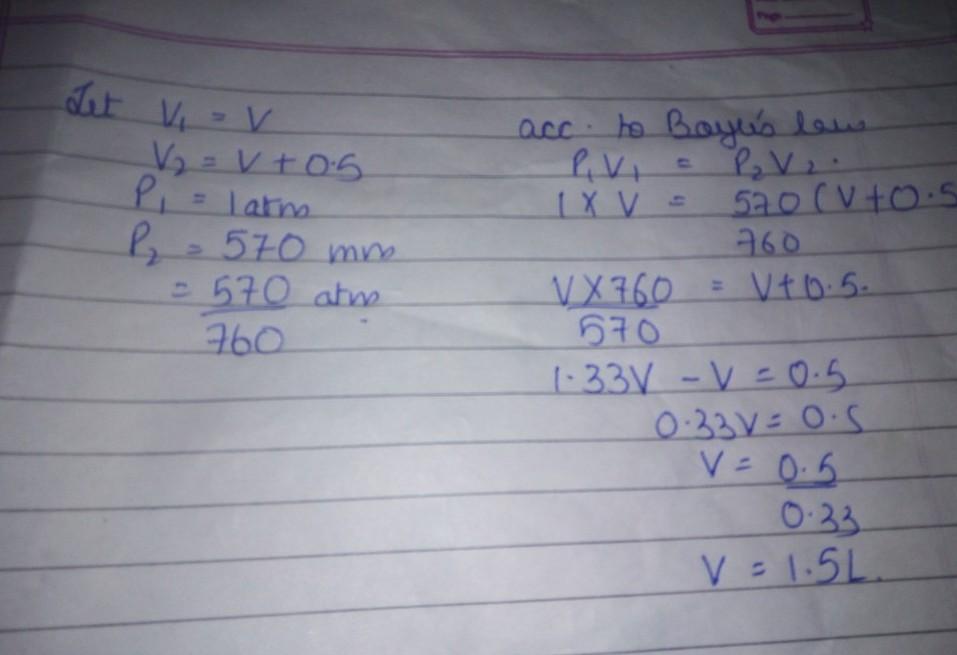 Let V₁ = V
V₂ = V + 0.5
P₁ = 1 atm
P₂ = 570 mm
= 570 atm
760
acc. to Boyle's law
P₁V₁ = P₂V₂.
1 X V = 570 (V + 0.5
760
V X 760 = V + 0.5.
570
1.33V - V = 0.5
0.33V = 0.5
V = 0.5
0.33
V = 1.5L.